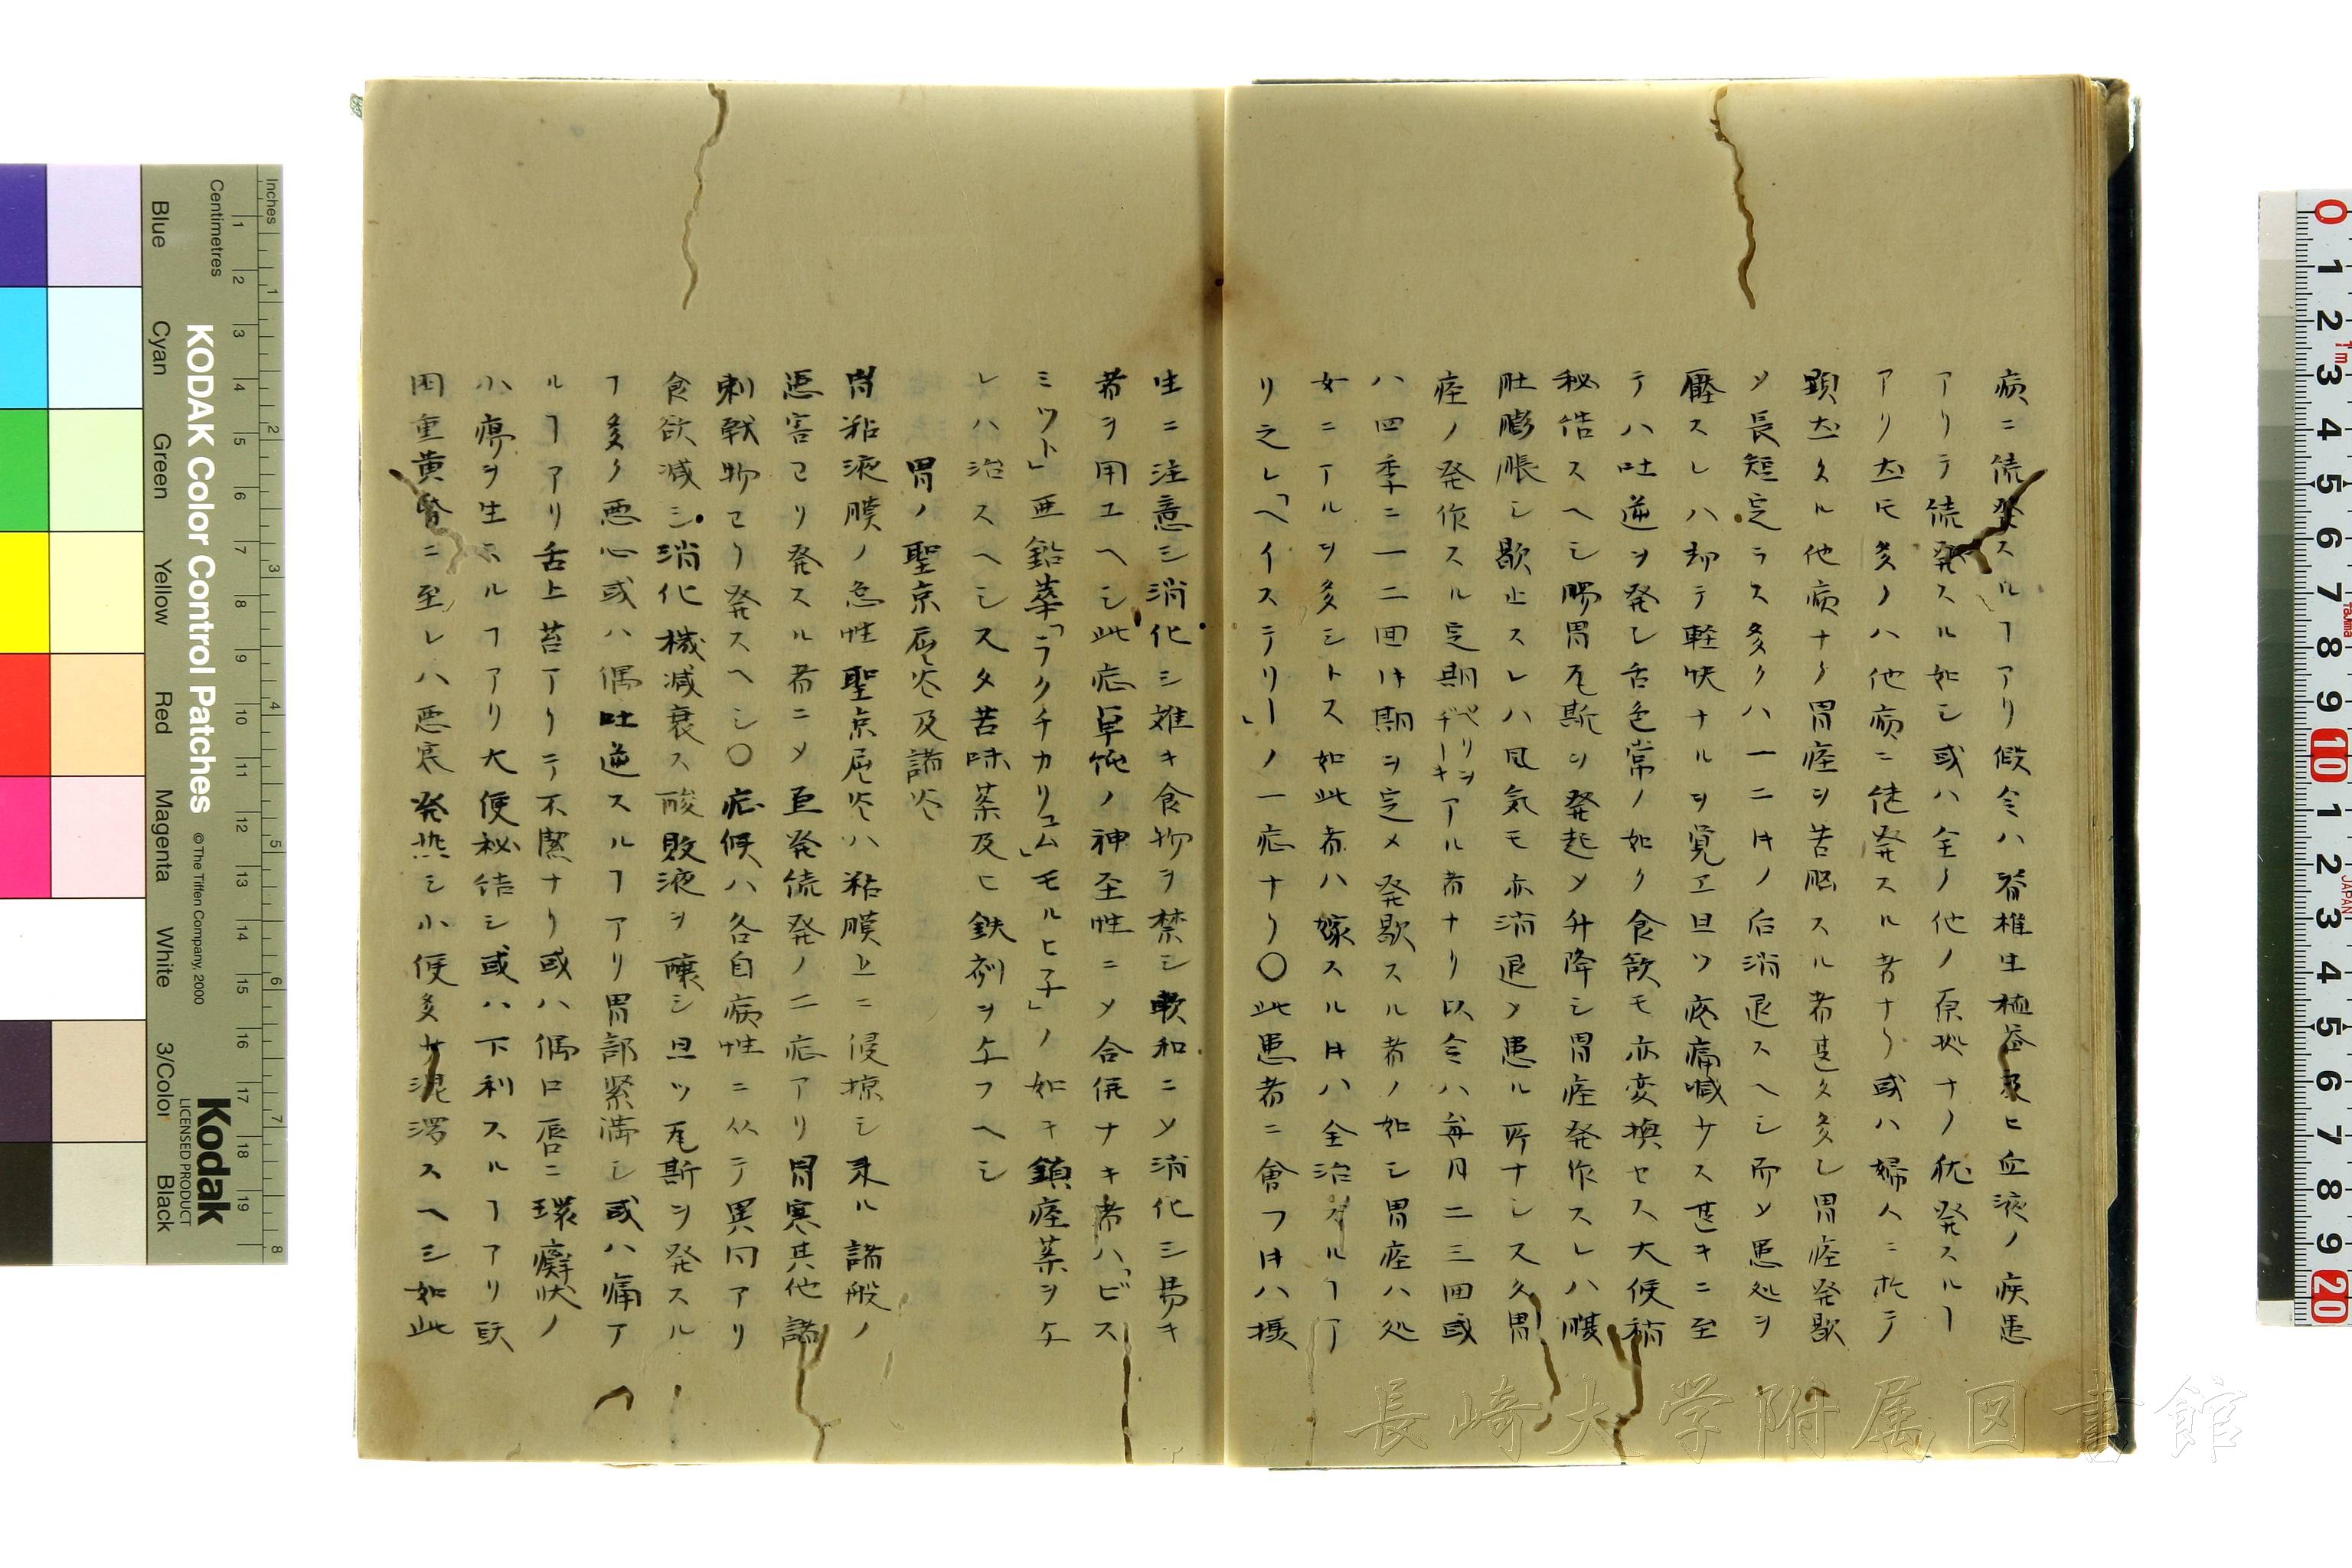 病ニ続発スルヿアリ假令ハ脊椎生殖器及ヒ血液ノ疾患
アリテ続発スル如シ或ハ全ク他ノ原拠ナク犹発スルヿ
アリ𪜈多クハ他病ニ継発スル者ナリ或ハ婦人ニ於テ
顕出スル他病ナク胃痙ヲ苦悩スル者甚タ多シ胃痙発歇
メ長短定ラス多クハ一二日ノ后消退スヘシ而メ患処ヲ
壓スレハ却テ軽快ナルヲ覚ヱ且ツ疼痛喊サス甚キニ至
テハ吐逆ヲ発シ舌色常ノ如ク食飲モ亦変換セス大便稍
秘结スヘシ腸胃瓦斯ヲ発起メ升降シ胃痙発作スレハ腹
肚膨脹シ歇止スレハ風気モ亦消退メ患ル所ナシ又胃
痙ノ発作スル定期ペリヲヂーキアル者ナリ以令ハ毎月二三回或
ハ四季ニ一二回日期ヲ定メ発歇スル者ノ如シ胃痙ハ処
女ニアルヲ多シトス如此者ハ嫁スル日ハ全治スルヿア
リ之レ「ヘイステリー」ノ一症ナリ〇此患者ニ會フ日ハ摂
生ニ注意シ消化シ難キ食物ヲ禁シ軟和ニメ消化シ易キ
者ヲ用ユヘシ此症単純ノ神至性ニメ合併ナキ者ハ「ビス
ミツト」亜鉛華「ラクチカリュム」モルヒ子」ノ如キ鎮痙薬ヲ与
レハ治スヘシ又タ苦味薬及ヒ鉄剤ヲ与フヘシ
胃ノ聖京屈炎及諸炎
胃粘液膜ノ急性聖京屈炎ハ粘膜上ニ侵掠シ来ル諸般ノ
悪害ヨリ発スル者ニメ亘発続発ノ二症アリ胃寒其他諸
刺戟物ヨリ発スヘシ〇症候ハ各自病性ニ从テ異同アリ
食欲減シ消化機減衰ス酸敗液ヲ醸シ且ツ瓦斯ヲ発スル
ヿ多ク悪心或ハ偶吐逆スルヿアリ胃部緊満シ或ハ痛ア
ルヿアリ舌上苔アリテ不潔ナリ或ハ偶口唇ニ環癬状ノ
小瘍ヲ生スルヿアリ大便秘结シ或ハ下利スルヿアリ頭
困重黄昏ニ至レハ悪寒発热シ小便多ク混濁スヘシ如此
KODAK Color Control Patches
© The Tiffen Company, 2000
Kodak
LICENSED PRODUCT
Inches
Centimetres
Blue
Cyan
Green
Yellow
Red
Magenta
White
3/Color
Black
長崎大学附属図書館